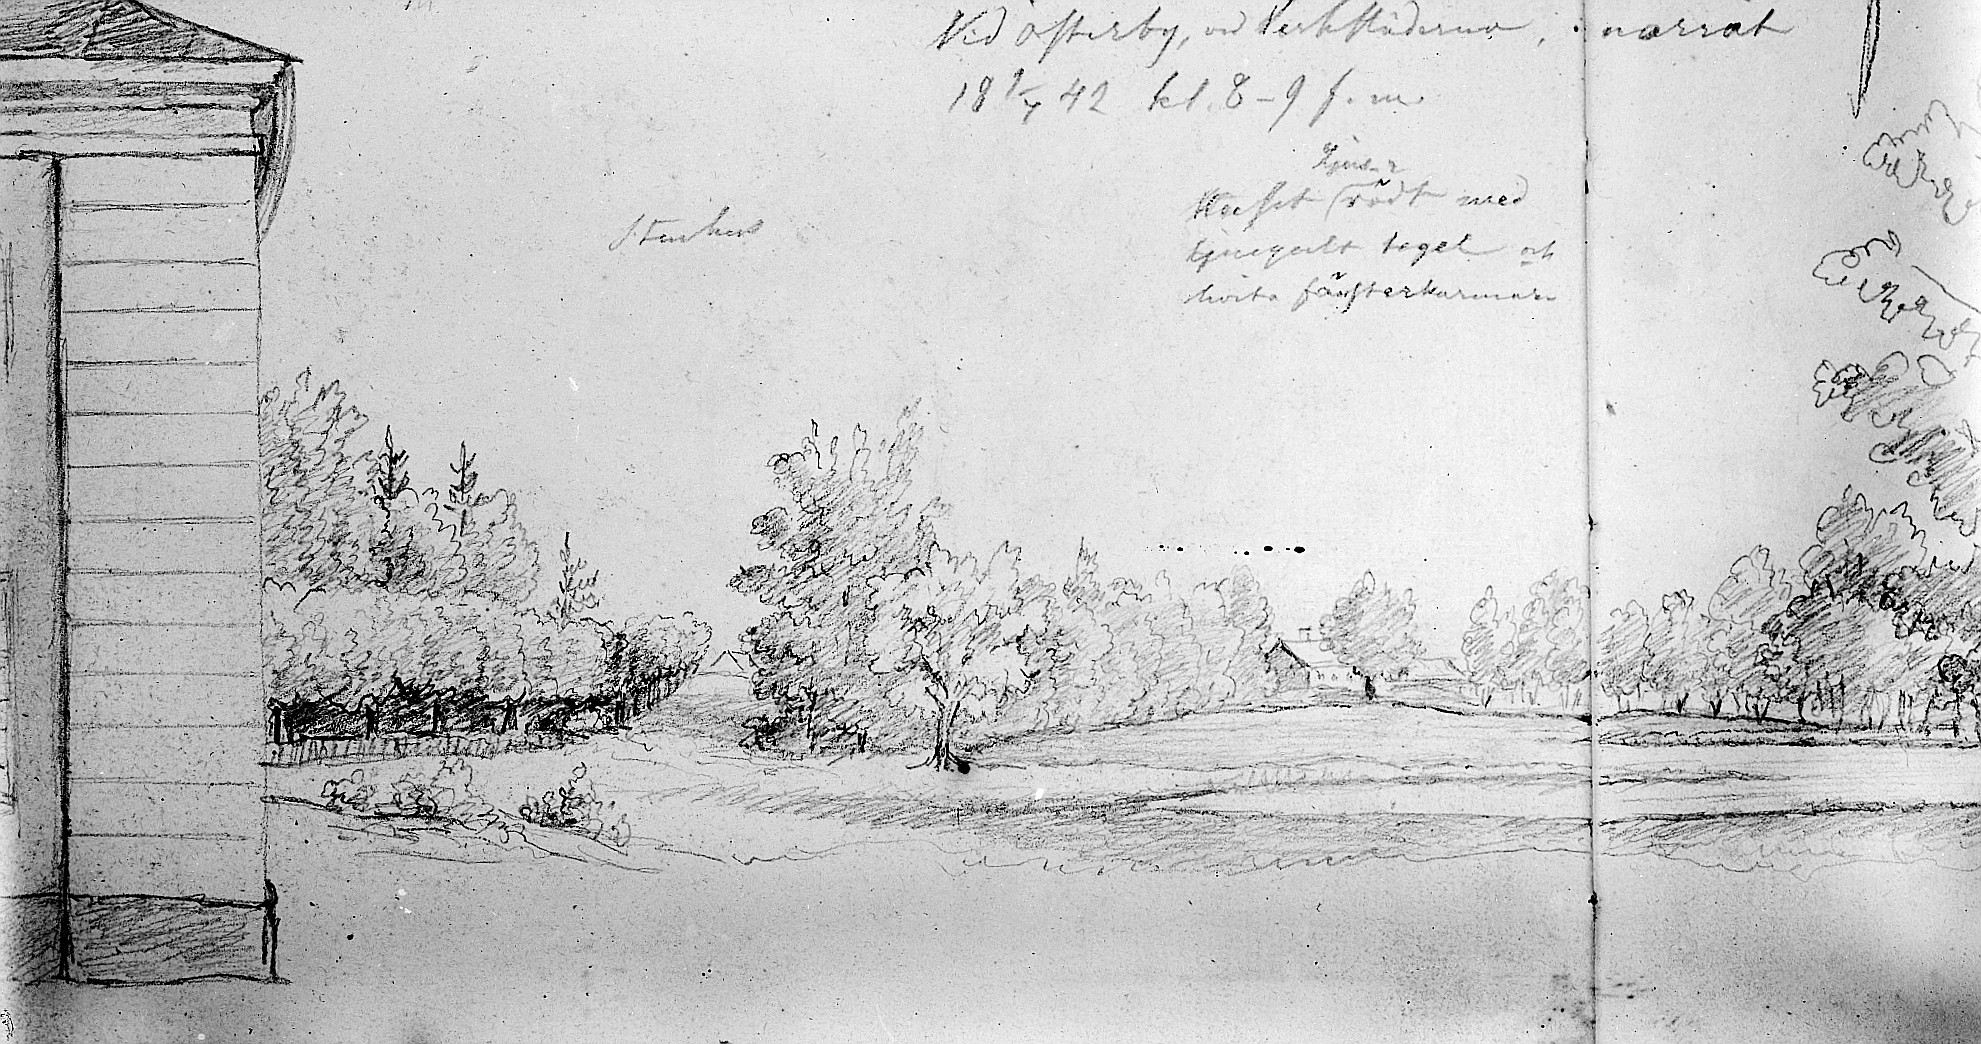 Vid Österby, vid Verkstäderna, norrat
18 1/7 42 kl. 8-9 f.m.
Stenhus
ljus-
Huset rödt med
ljusgult tegel och
hvita fönsterkarmar